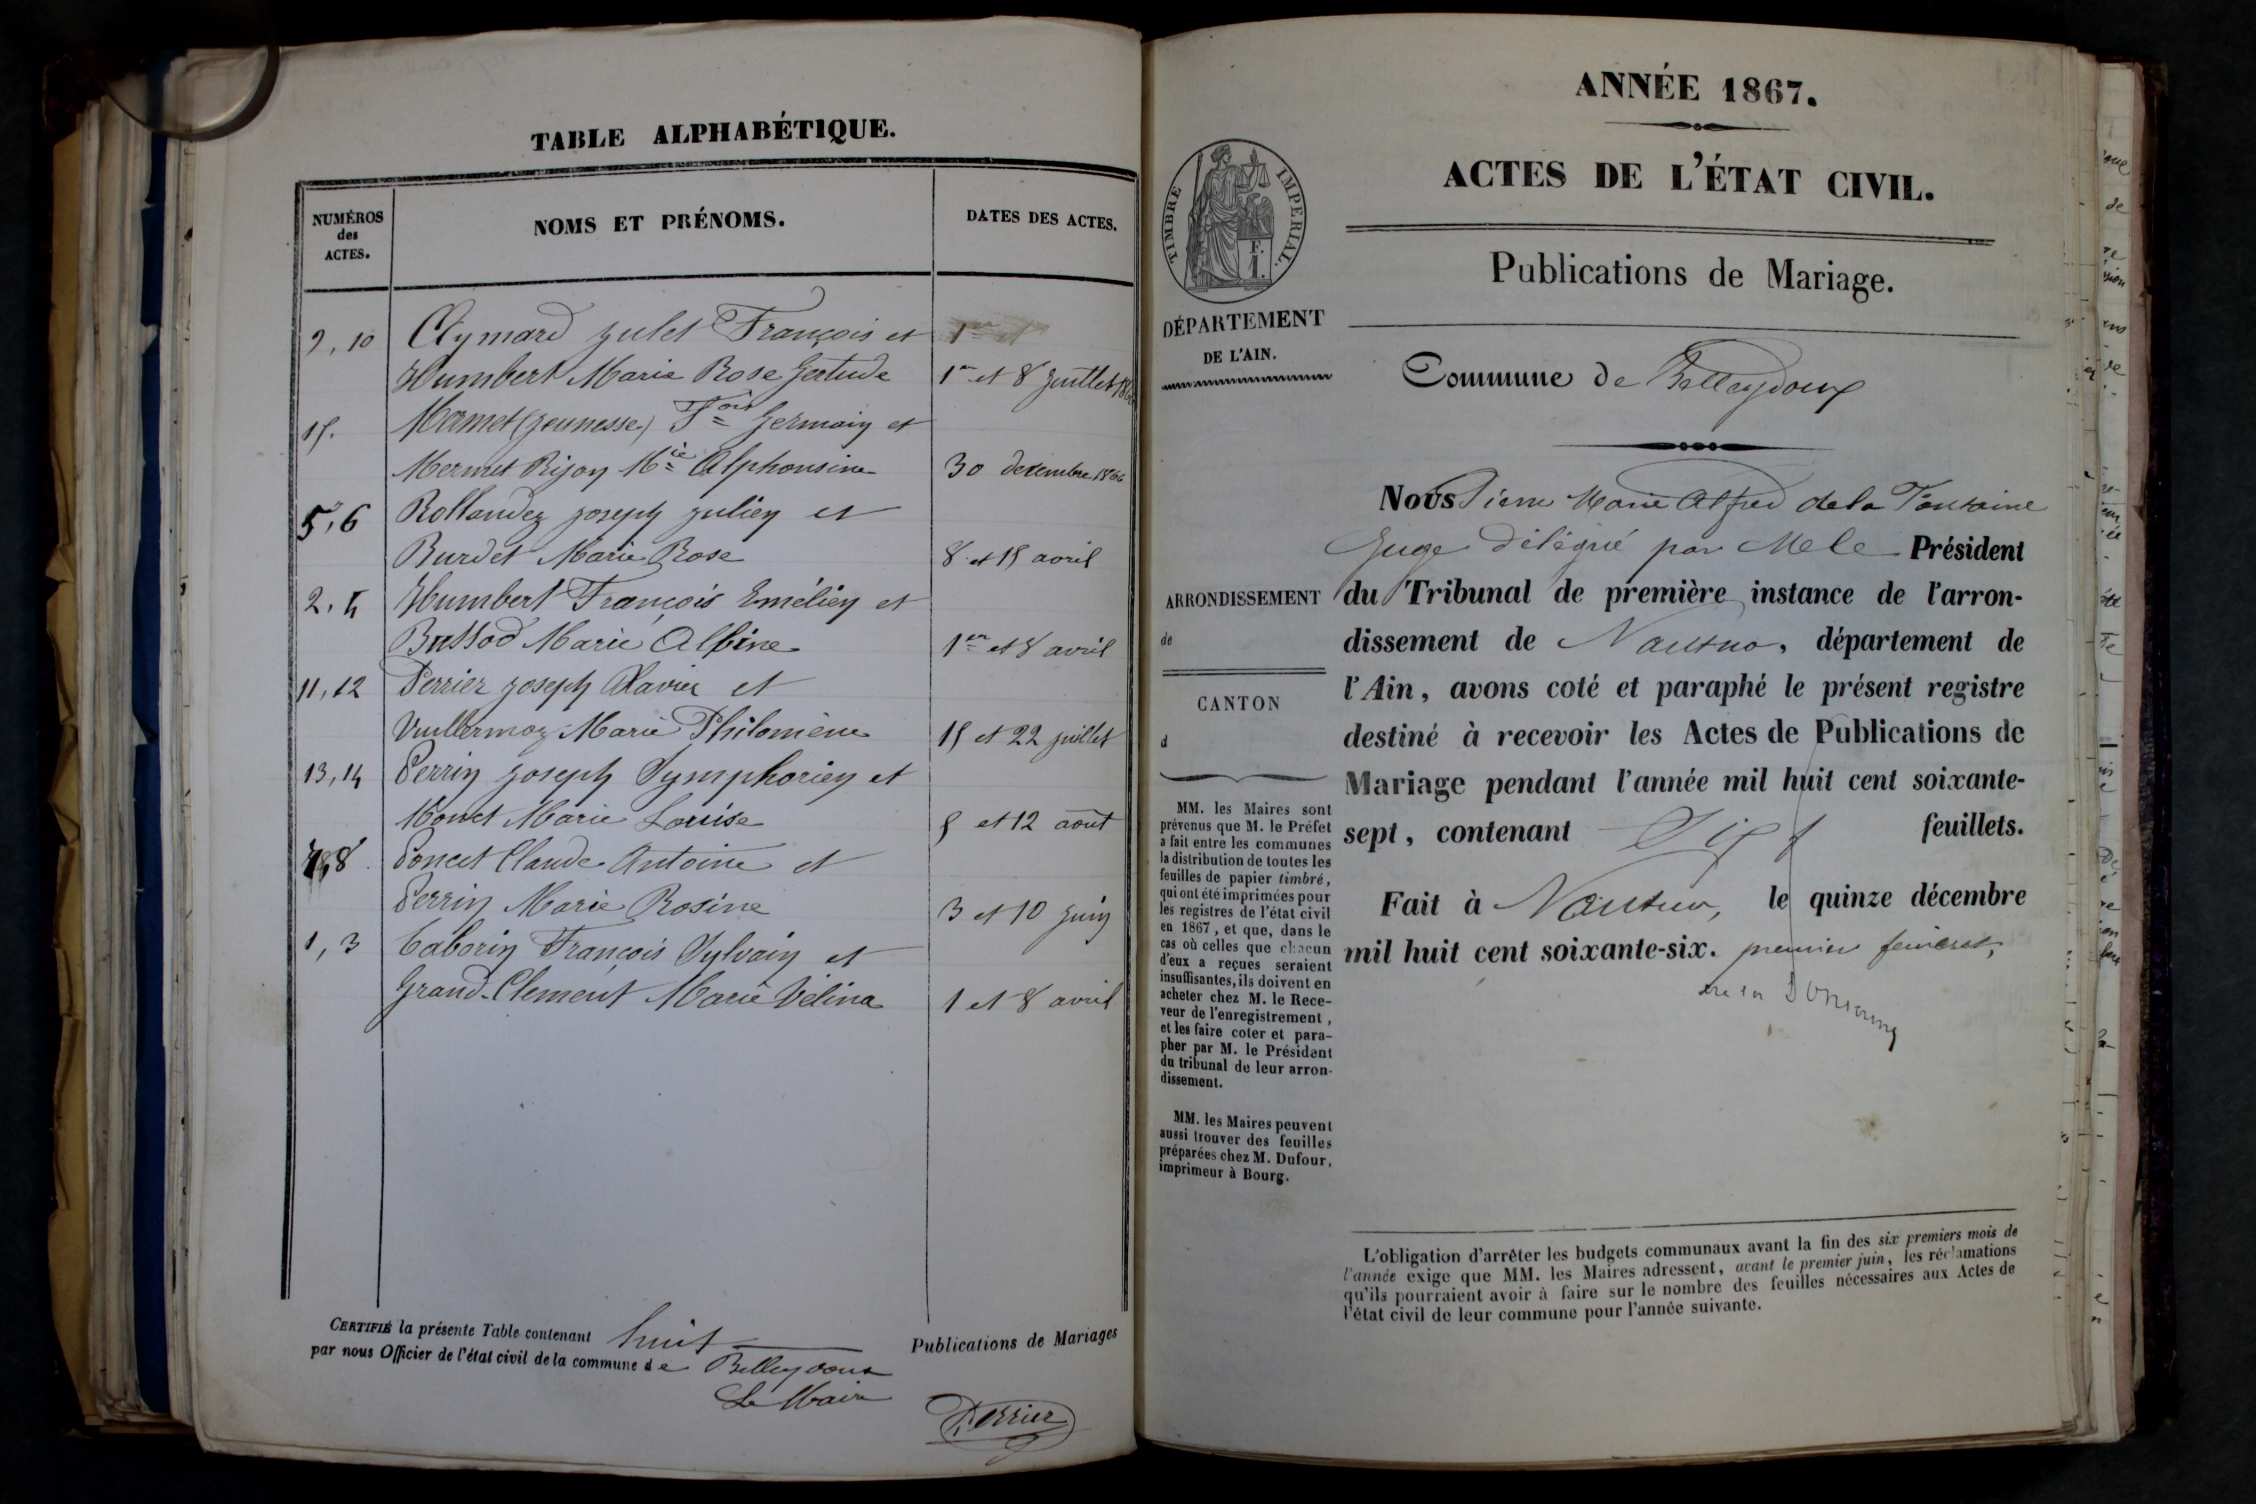 TABLE ALPHABÉTIQUE.
NUMÉROS
des
ACTES.
NOMS ET PRÉNOMS.
DATES DES ACTES.
9, 10 Aymard Jules François et
Humbert Marie Rose Gertude 1er et 8 juillet 1866
15. Mermet (jeunesse) Fois Germain et
Mermet Rijon Mie Alphonsine 30 decembre 1866
5, 6 Rollandez joseph julien et
Burdet Marie Rose 8 et 15 avril
2, 4 Humbert François Emélien et
Bussod Marie Albine 1er et 8 avril
11, 12 Perrier joseph Xavier et
Vuillermoz Marie Philomène 15 et 22 juillet
13, 14 Perrin joseph Symphorien et
Monet Marie Louise 5 et 12 août
7, 8 Poncet Claude Antoine et
Perrin Marie Rosine 3 et 10 juin
1, 3 Taborin François Sylvain et
Grand-Clement Marie Vélina 1 et 8 avril
CERTIFIÉ la présente Table contenant huit Publications de Mariages
par nous Officier de l'état civil de la commune de Belleydoux
Le Maire
Perrier
ANNÉE 1867.
ACTES DE L'ÉTAT CIVIL.
Publications de Mariage.
TIMBRE IMPERIAL.
F.
1.
DÉPARTEMENT
DE L'AIN.
Commune de Belleydoux
ARRONDISSEMENT
de
CANTON
d
MM. les Maires sont
prévenus que M. le Préfet
a fait entre les communes
la distribution de toutes les
feuilles de papier timbré,
qui ont été imprimées pour
les registres de l'état civil
en 1867, et que, dans le
cas où celles que chacun
d'eux a reçues seraient
insuffisantes, ils doivent en
acheter chez M. le Rece-
veur de l'enregistrement,
et les faire coter et para-
pher par M. le Président
du tribunal de leur arron-
dissement.
MM. les Maires peuvent
aussi trouver des feuilles
préparées chez M. Dufour,
imprimeur à Bourg.
Nous Pierre Marie Alfred de la Fontaine
Juge délégué par M le Président
du Tribunal de première instance de l'arron-
dissement de Nantua, département de
l'Ain, avons coté et paraphé le présent registre
destiné à recevoir les Actes de Publications de
Mariage pendant l'année mil huit cent soixante-
sept, contenant Six feuillets.
Fait à Nantua, le quinze décembre
mil huit cent soixante-six. premier feuillet,
L'obligation d'arrêter les budgets communaux avant la fin des six premiers mois de
l'année exige que MM. les Maires adressent, avant le premier juin, les réclamations
qu'ils pourraient avoir à faire sur le nombre des feuilles nécessaires aux Actes de
l'état civil de leur commune pour l'année suivante.